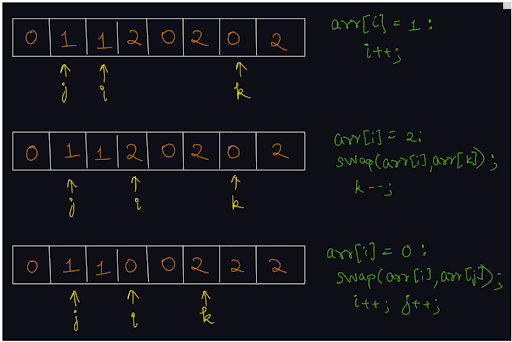 0 1 1 2 0 2 0 2
j i k
arr[i] = 1 :
i++;
0 1 1 2 0 2 0 2
j i k
arr[i] = 2:
swap(arr[i], arr[k]);
k--;
0 1 1 0 0 2 2 2
j i k
arr[i] = 0 :
swap(arr[i], arr[j]);
i++; j++;